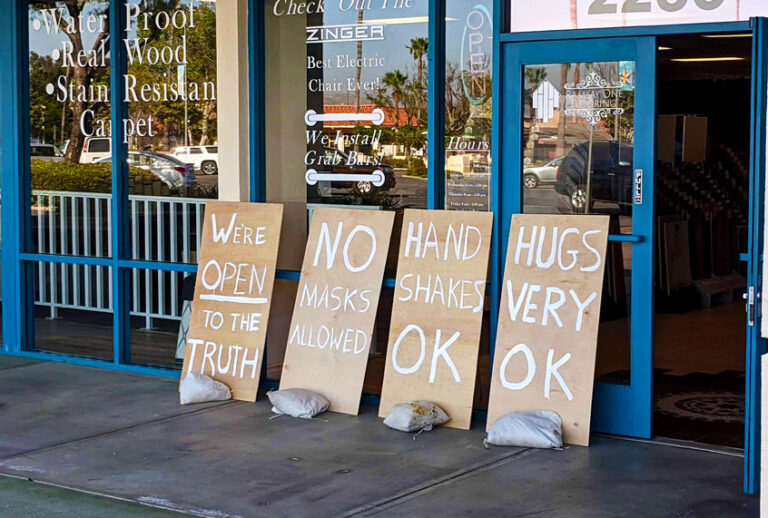 •Water Proof
•Real Wood
•Stain Resistan
Carpet
Check Out The
ZINGER
Best Electric
Chair Ever!
We Install
Grab Bars!
OPEN
Hours
RAMSAY ONE
FLOORING
PULL
WE'RE
OPEN
TO THE
TRUTH
NO
MASKS
ALLOWED
HAND
SHAKES
OK
HUGS
VERY
OK